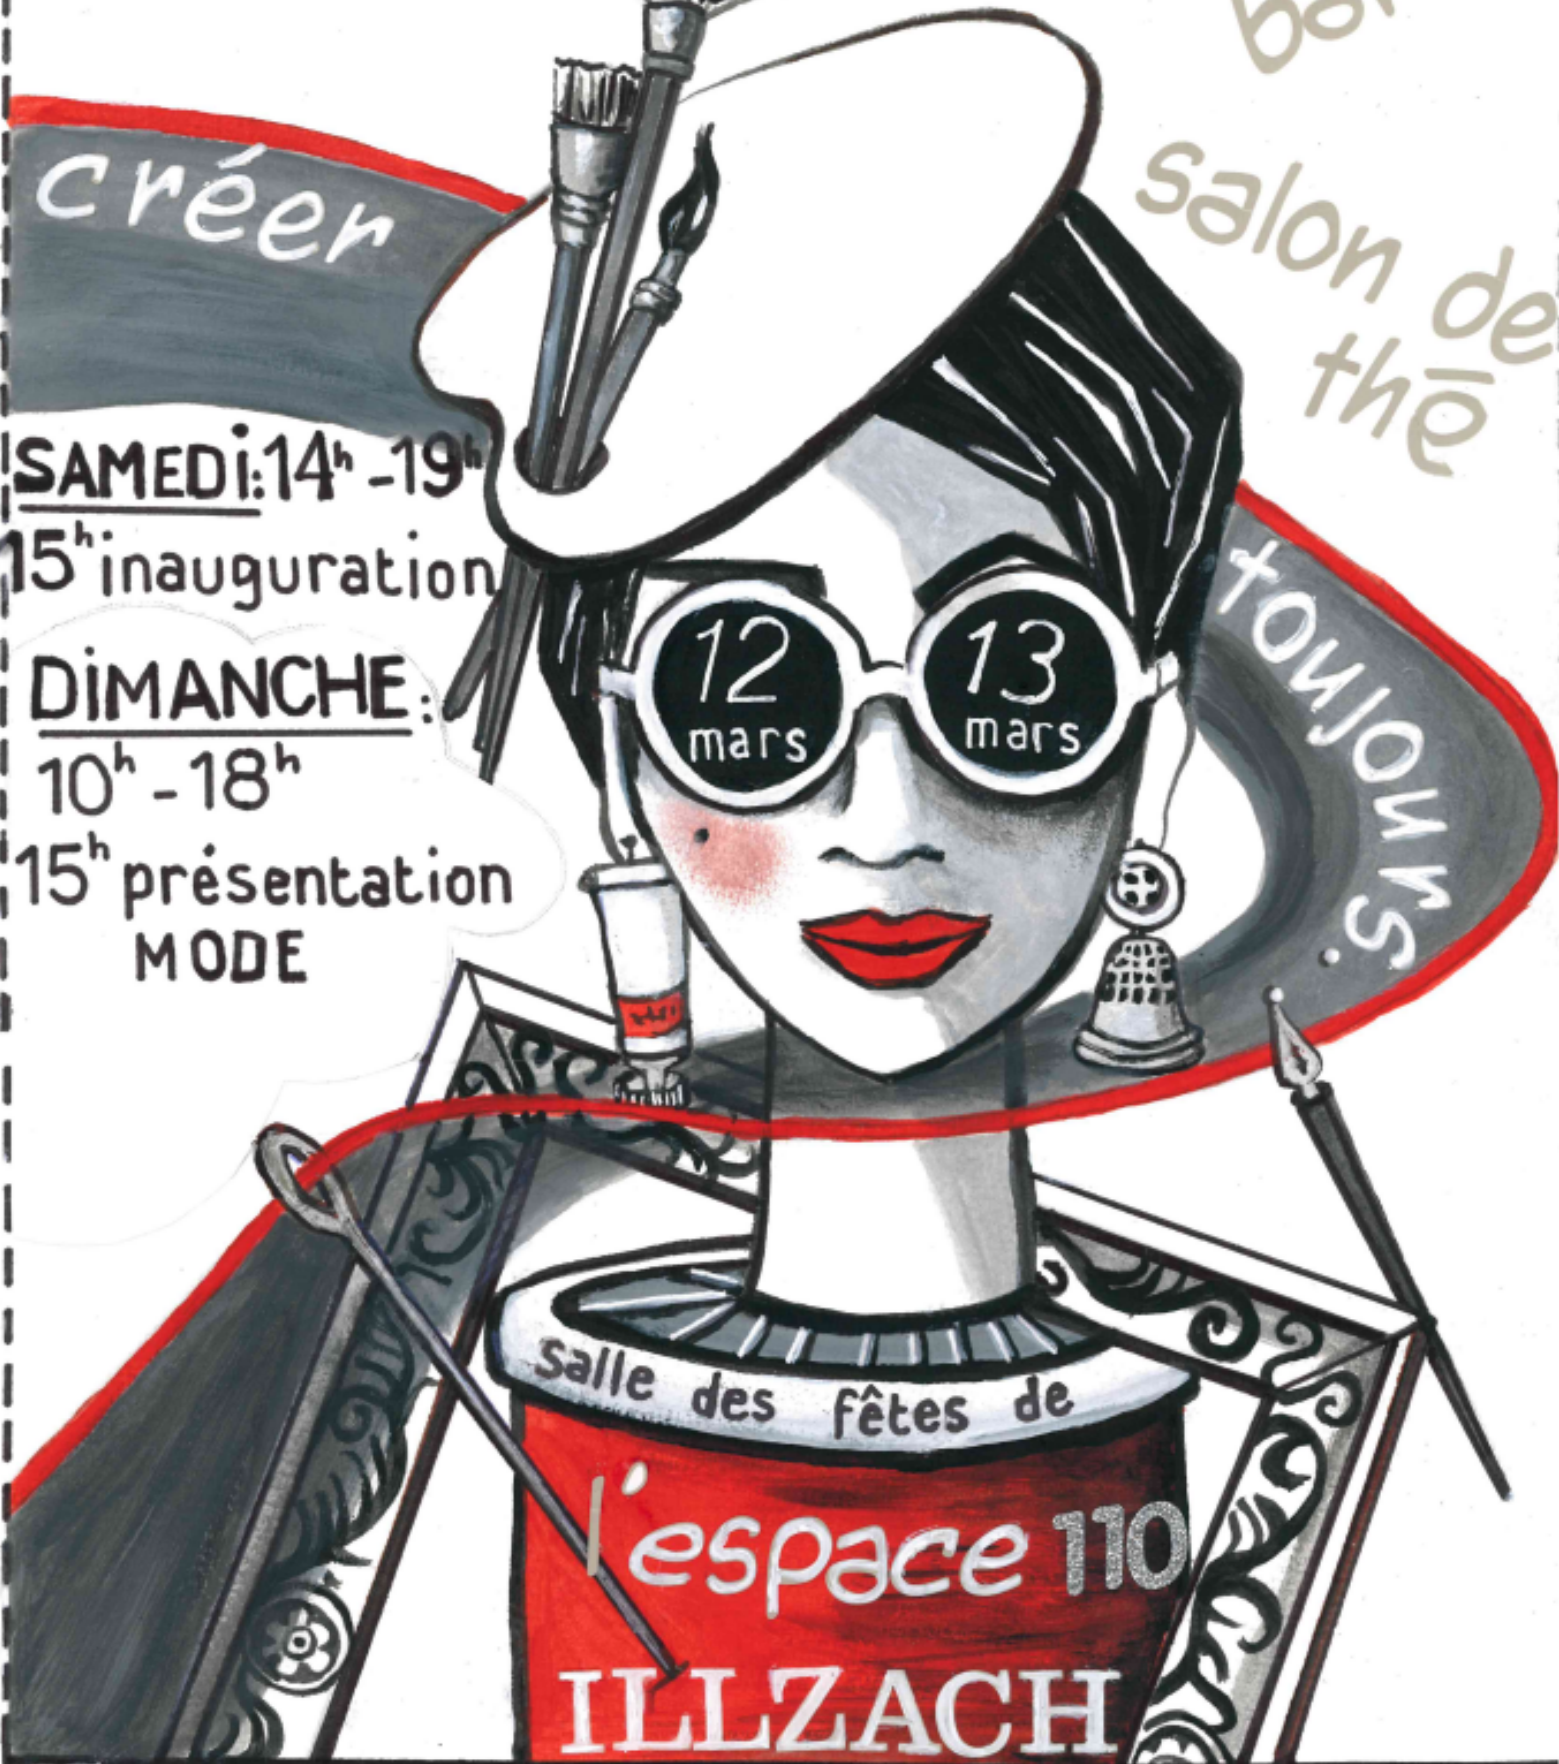 salon de
thé
créer
SAMEDi: 14h - 19h
15h inauguration
DiMANCHE:
10h - 18h
15h présentation
MODE
12
mars
13
mars
toujours.
salle des fêtes de
l'espace 110
ILLZACH